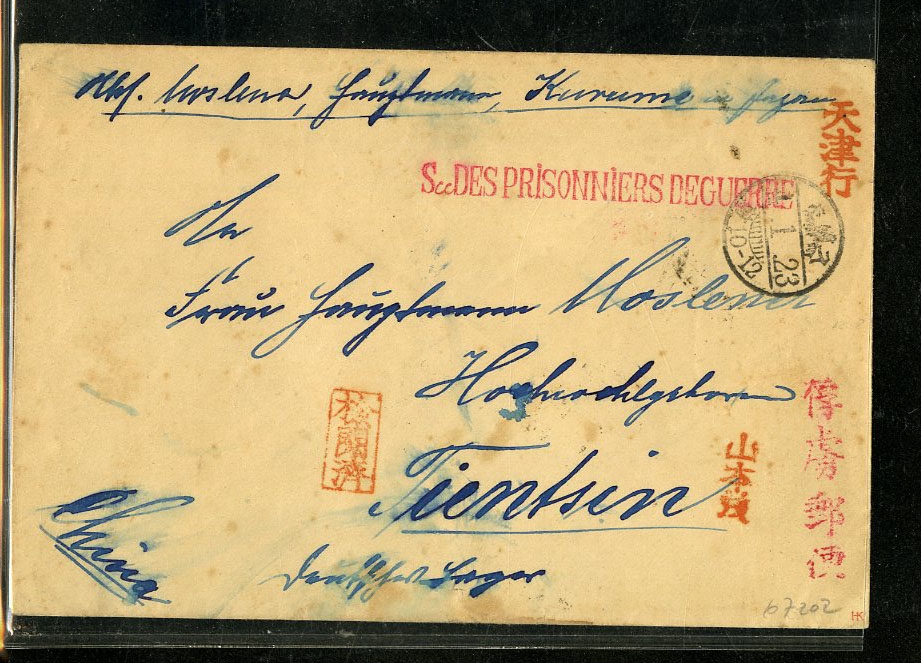 Abs. Moslener, Hauptmann, Kurume in Japan
天津行
S.cc DES PRiSONNiERS DEGUERRE
1. 23
10-12
An
Frau Hauptmann Moslener
Hochwohlgeboren
檢閲濟
山本
俘虜郵便
Tientsin
China
Deutsches Lager
67202
HK